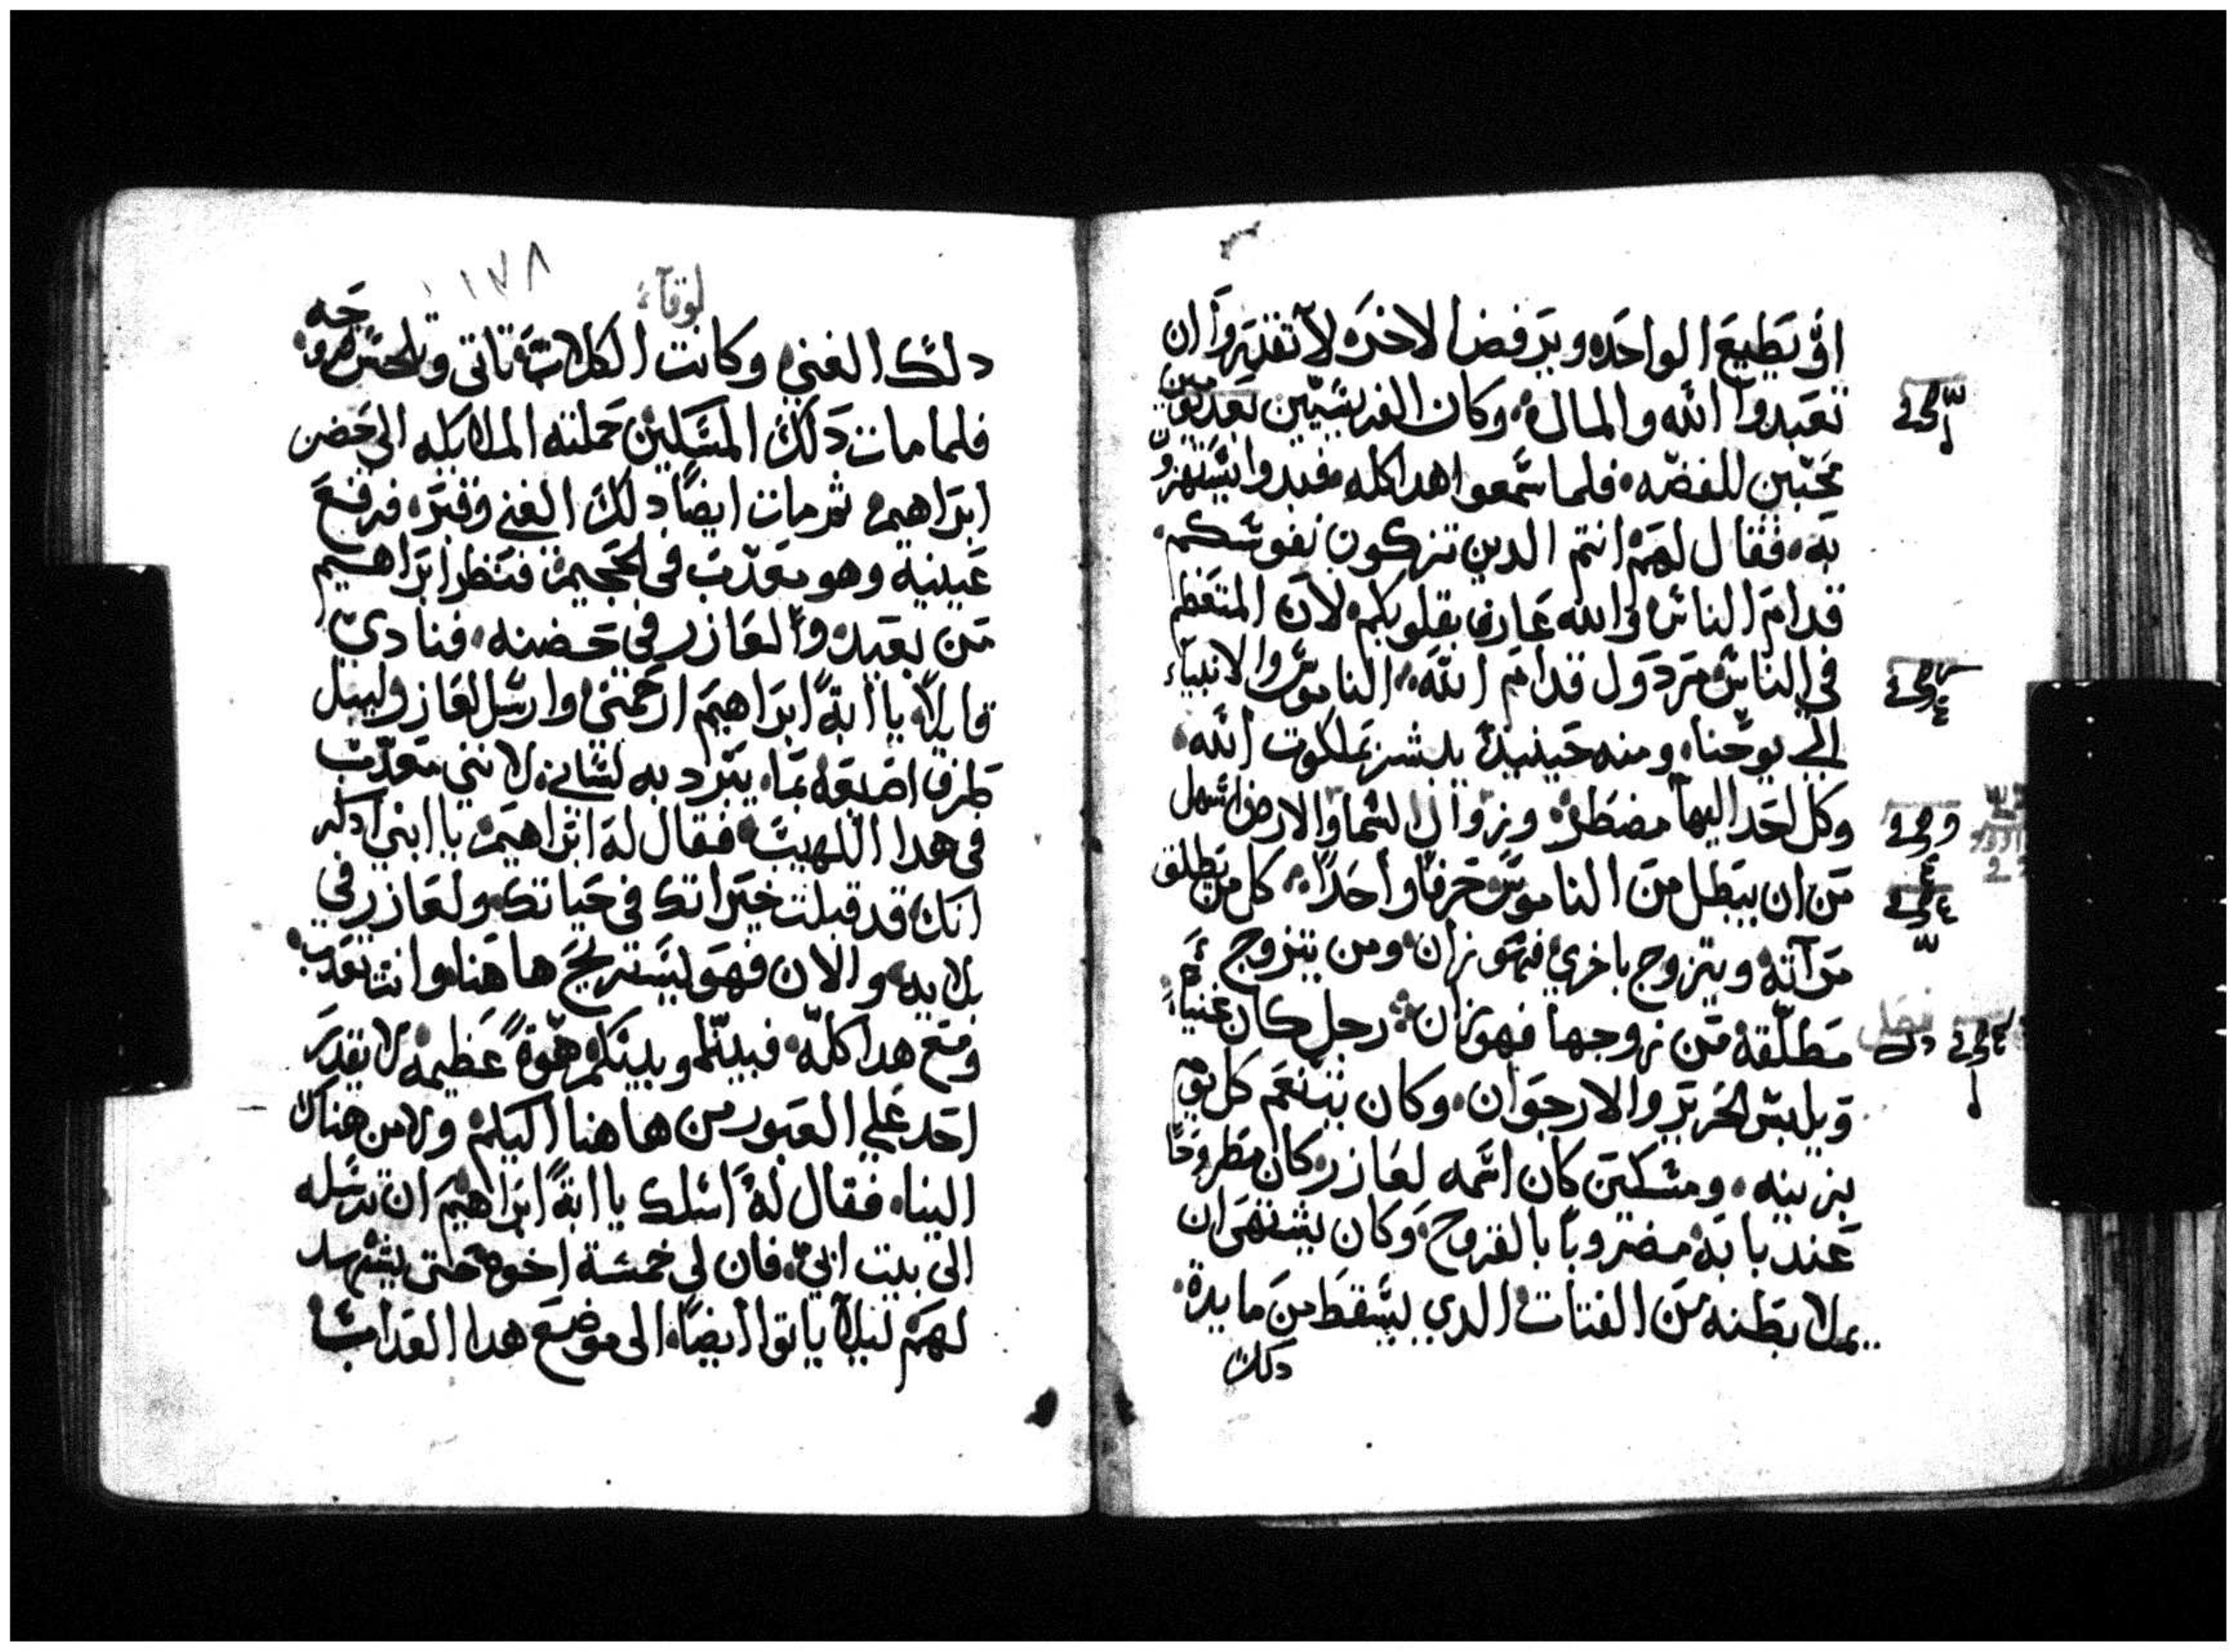 او يطيع الواحده ويرفض الاخره لا تقدروا ان
تعبدوا الله والمال وكان الفريسيين
محبين للفضه فلما سمعوا هدا كله فبدوا يستهزون
به فقال لهم انتم الدين تزكون نفوسكم
قدام الناس والله عارف بقلوبكم لان المتعظم
في الناس مردول قدام الله الناموس والانبياء
الي يوحنا ومنه حينيد يبشر بملكوت الله
وكل احد اليها مضطر وزوال السما والارض اسهل
من ان يبطل من الناموس حرفا واحدا كل من يطلق
مرآته ويتزوج باخري فهو زان ومن يتزوج
مطلقة من زوجها فهو زان رجل كان غنيا
فصل
ويلبس الحرير والارجوان وكان يتنعم كل يوم
بزينه ومسكين كان اسمه لعازر كان مطروحا
عند بابه مضروبا بالقروح وكان يشتهى ان
يملا بطنه من الفتات الدي يسقط من مايدة
دلك
لوقآء
١٧٨
دلك الغني وكانت الكلاب تاتي وتلحس قروحه
فلما مات دلك المسكين حملته الملايكه الى حضن
ابراهيم ثم مات ايضا دلك الغني وقبر فرفع
عينيه وهو معدب في الجحيم فنظر ابراهيم
من بعيد والعازر في حضنه فنادي
قايلا يا ابة ابراهيم ارحمني وارسل لعازر ليبل
طرف اصبعه بما يبرد به لساني لانني معدب
في هدا اللهيب فقال له ابراهيم يا ابني ادكر
انك قد قبلت خيراتك في حياتك ولعازر في
بلايه والان فهو يستريح هاهنا وانت تعدب
ومع هدا كله فبيننا وبينكم هوة عظيمه لا يقدر
احد علي العبور من هاهنا اليكم ولا من هناك
الينا فقال له اسلك يا ابة ابراهيم ان ترسله
الى بيت ابي فان لي خمسة اخوه حتى يشهد
لهم ليلا ياتوا ايضا الى موضع هدا العداب